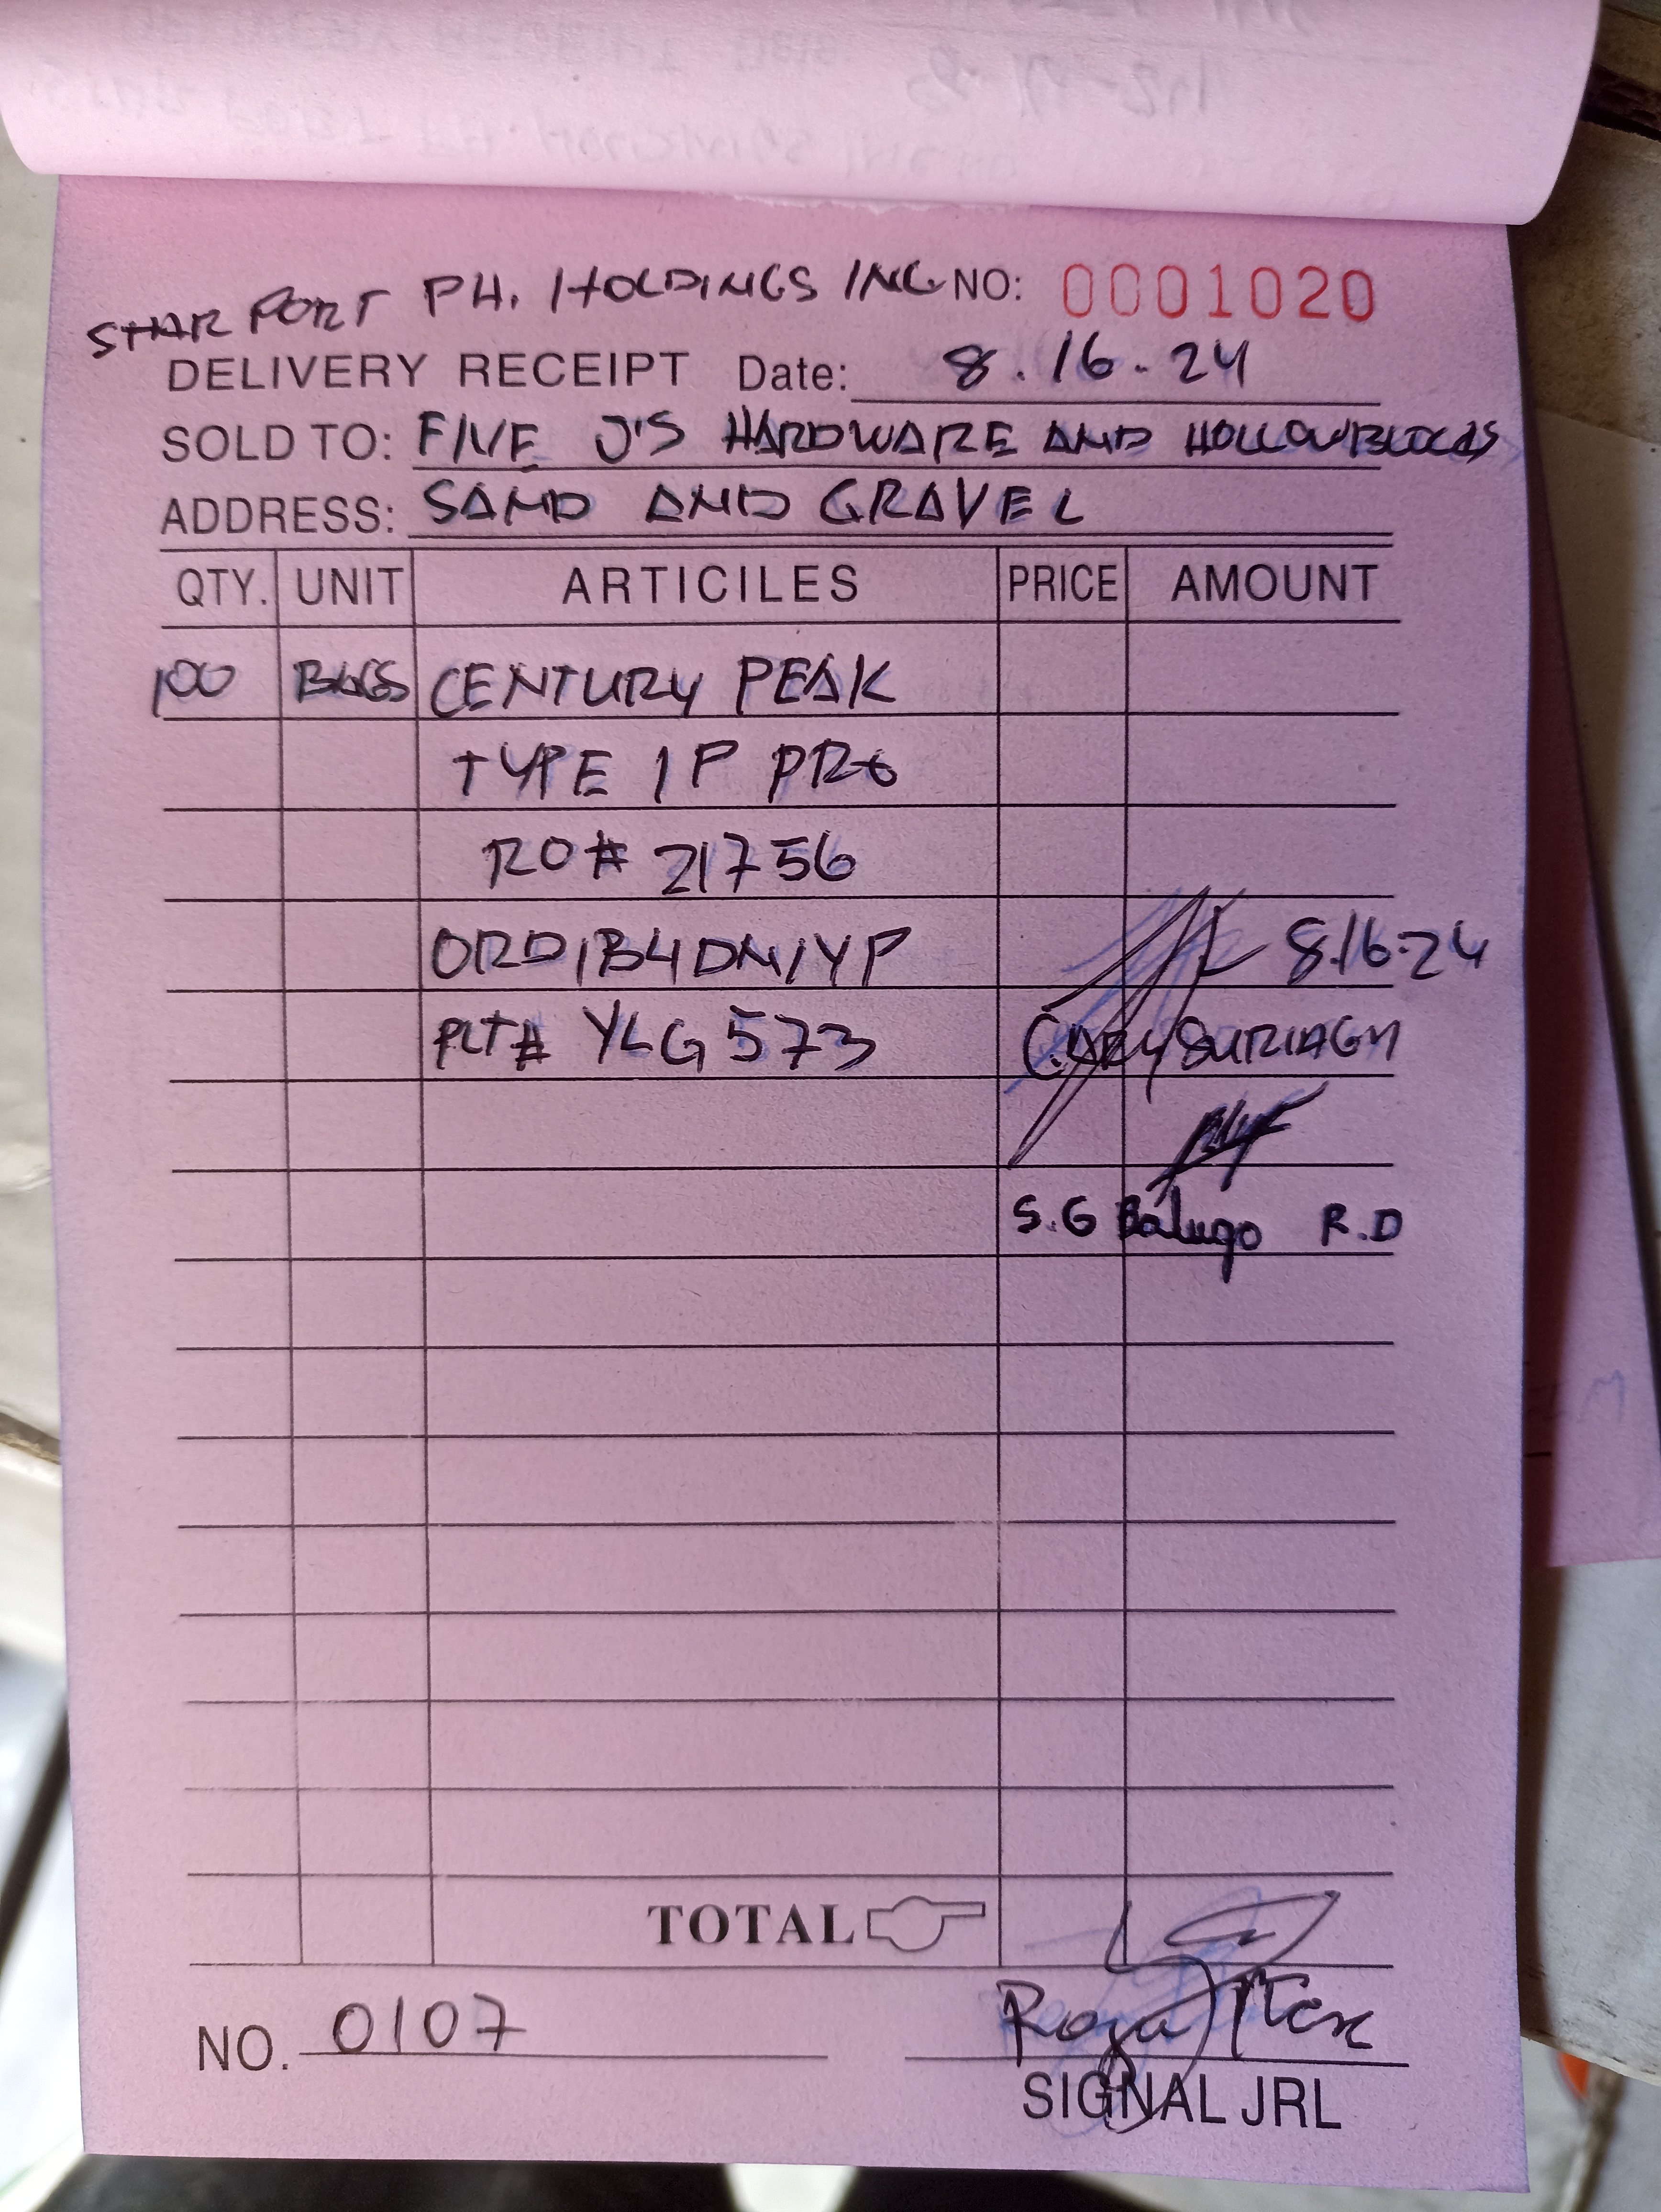 STAR PORT PH. HOLDINGS INC NO: 0001020
DELIVERY RECEIPT Date: 8.16.24
SOLD TO: FIVE J'S HARDWARE AND HOLLOWBLOCKS
ADDRESS: SAND AND GRAVEL
QTY. UNIT ARTICILES PRICE AMOUNT
100 BAGS CENTURY PEAK
TYPE 1P PRO
RO# 21756
ORD1B4DN1YP 8.16.24
PLT# YLG 573
S.G Balugo R.D
TOTAL
NO. 0107
SIGNAL JRL